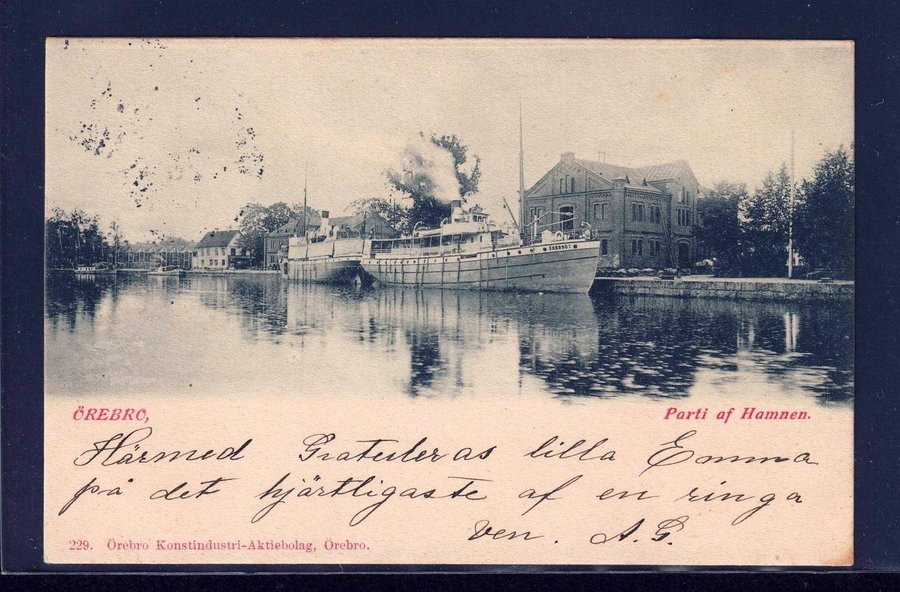 ÖREBRO,
Parti af Hamnen.
Härmed Gratuleras lilla Emma
på det hjärtligaste af en ringa
Ven. A.G.
229. Örebro Konstindustri-Aktiebolag, Örebro.